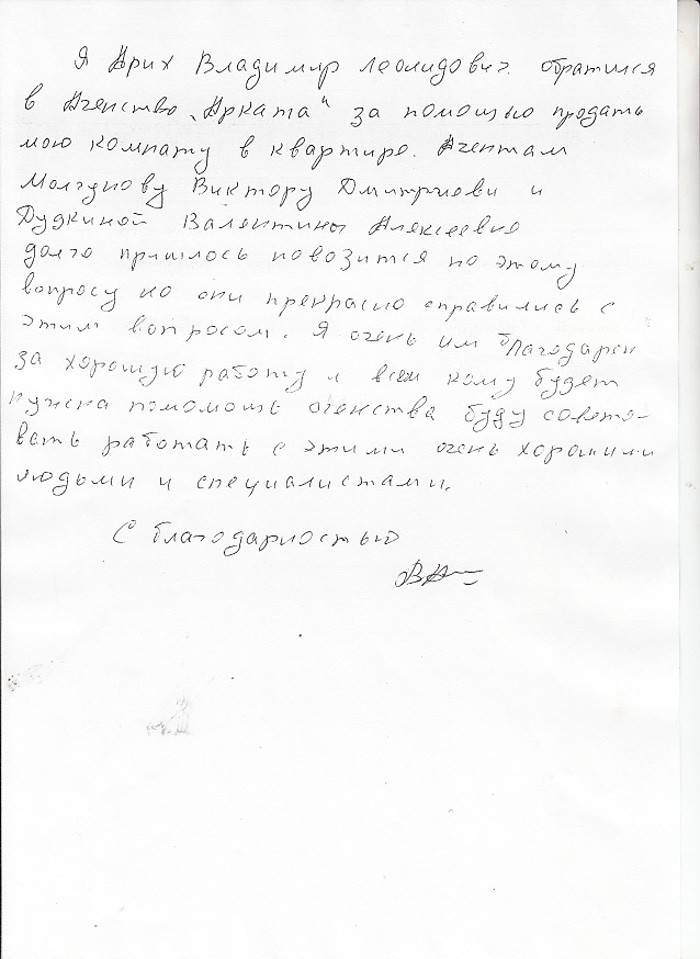 Я Арих Владимир Леонидович обратился
в Агенство „Арката“ за помощью продать
мою комнату в квартире. Агентам
Молгунову Виктору Дмитриеви и
Дудкиной Валентины Алексеевне
долго пришлось повозится по этому
вопросу но они прекрасно справились с
этим вопросом. Я очень им благодарен
за хорошую работу и всем кому будет
нужна помомощь агенства буду совето-
вать работать с этими очень хорошими
людьми и специалистами.
С благодарностью